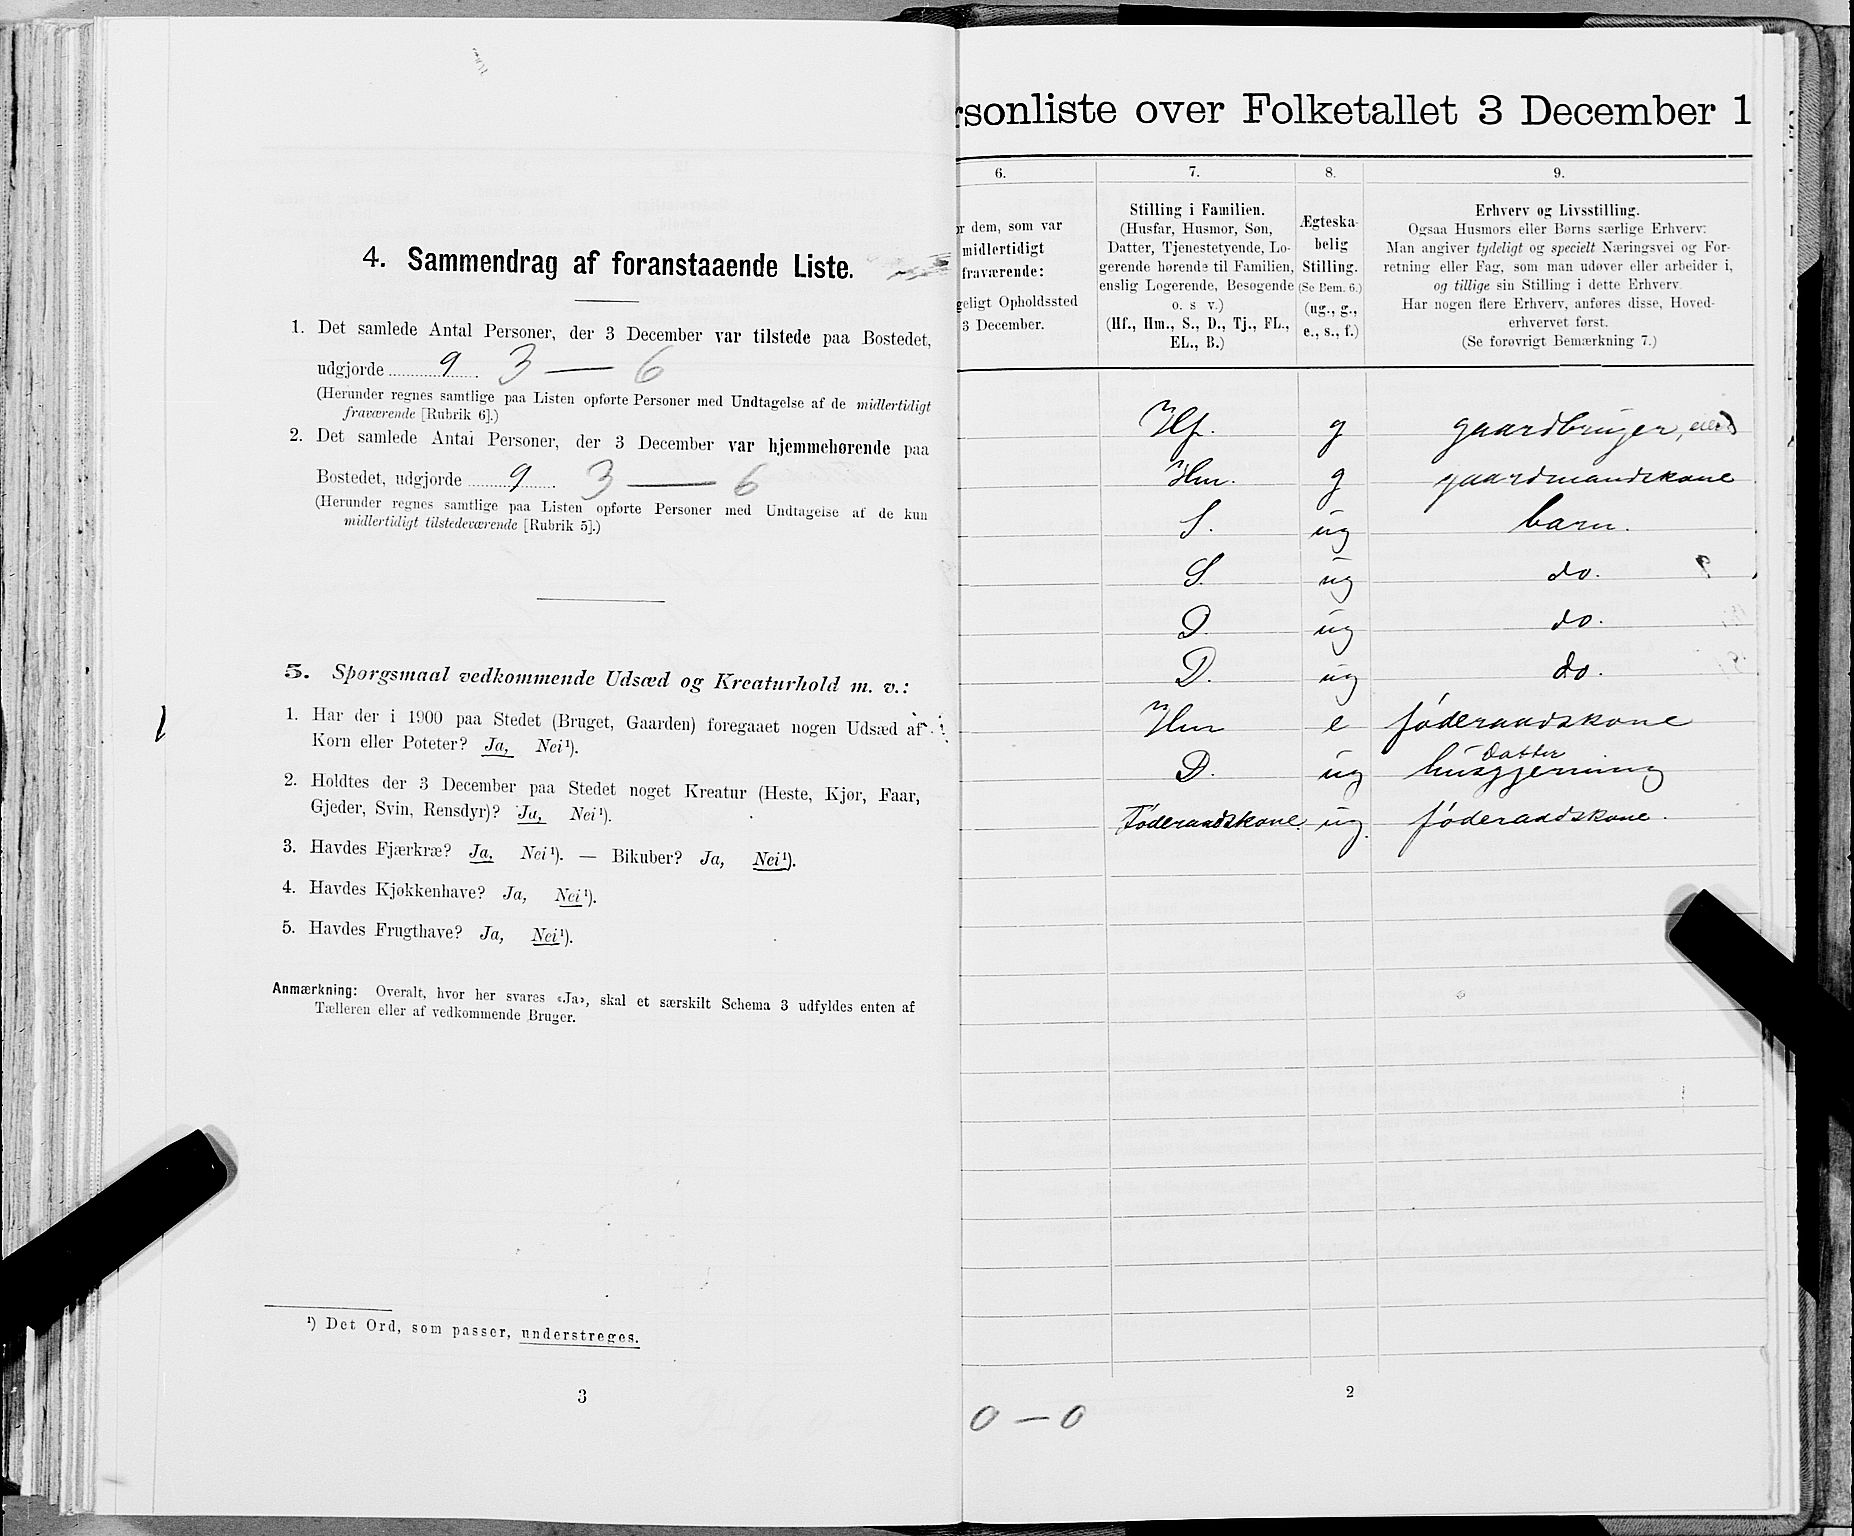 4. Sammendrag af foranstaaende Liste.
1. Det samlede Antal Personer, der 3 December var tilstede paa Bostedet,
udgjorde 9 3 — 6
(Herunder regnes samtlige paa Listen opførte Personer med Undtagelse af de midlertidigt
fraværende [Rubrik 6].)
2. Det samlede Antal Personer, der 3 December var hjemmehørende paa
Bostedet, udgjorde 9 3 — 6
(Herunder regnes samtlige paa Listen opførte Personer med Undtagelse af de kun
midlertidigt tilstedeværende [Rubrik 5].)
5. Spørgsmaal vedkommende Udsæd og Kreaturhold m. v.:
1. Har der i 1900 paa Stedet (Bruget, Gaarden) foregaaet nogen Udsæd af
Korn eller Poteter? Ja, Nei¹).
2. Holdtes der 3 December paa Stedet noget Kreatur (Heste, Kjør, Faar,
Gjeder, Svin, Rensdyr)? Ja, Nei¹).
3. Havdes Fjærkræ? Ja, Nei¹). — Bikuber? Ja, Nei¹).
4. Havdes Kjøkkenhave? Ja, Nei¹).
5. Havdes Frugthave? Ja, Nei¹).
Anmærkning: Overalt, hvor her svares «Ja», skal et særskilt Schema 3 udfyldes enten af
Tælleren eller af vedkommende Bruger.
¹) Det Ord, som passer, understreges.
3
rsonliste over Folketallet 3 December 1
6. 7. 8. 9.
r dem, som var
midlertidigt
fraværende:
geligt Opholdssted
3 December.
Stilling i Familien.
(Husfar, Husmor, Søn,
Datter, Tjenestetyende, Lo-
gerende hørende til Familien,
enslig Logerende, Besøgende
o. s v.)
(Hf., Hm., S., D., Tj., FL.,
EL., B.)
Ægteska-
belig
Stilling.
(Se Bem. 6.)
(ug., g.,
e., s., f.)
Erhverv og Livsstilling.
Ogsaa Husmors eller Børns særlige Erhverv:
Man angiver tydeligt og specielt Næringsvei og For-
retning eller Fag, som man udøver eller arbeider i,
og tillige sin Stilling i dette Erhverv.
Har nogen flere Erhverv, anføres disse, Hoved-
erhvervet først.
(Se forøvrigt Bemærkning 7.)
Hf. g gaardbruger,
Hm. g gaardmandskone
S. ug barn.
S. ug do.
D. ug do.
D. ug do.
Hm e føderaadskone
Datter
D. ug husgjerning
Føderaadskone. ug. føderaadskone.
2
0 — 0